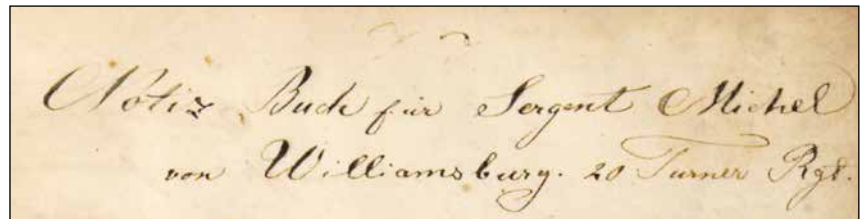 Notiz Buch für Sergent Michel
von Williamsburg. 20 Turner Rgt.